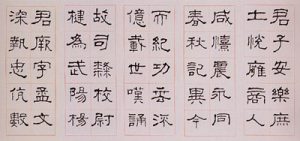 君子安樂庶
士悅雍商人
咸憘
春秋記異今
而紀功垂流
億載世嘆誦
故司隸校尉
楗為武陽楊
君厥字孟文
深執忠伉數